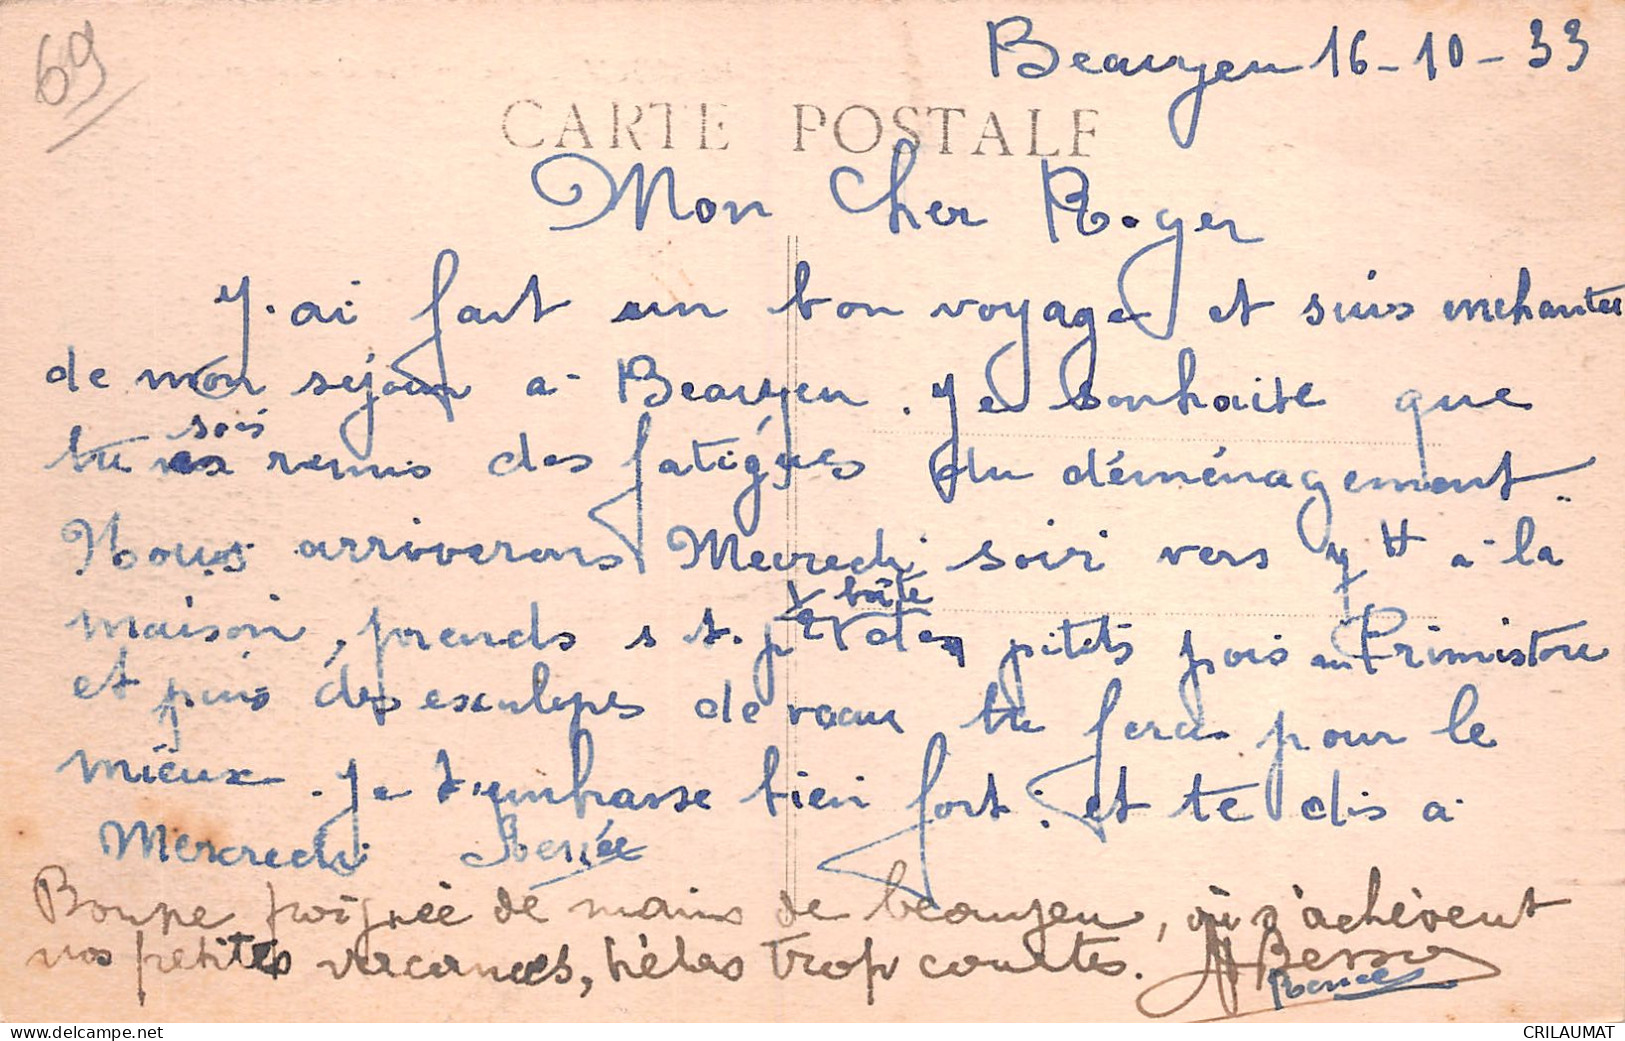 69
Beaujeu 16-10-33
CARTE POSTALE
Mon Cher Roger
J'ai fait un bon voyage et suis enchantée
de mon séjour à Beaujeu. Je souhaite que
sois
tu es remis des fatigues du déménagement.
Nous arriverons Mercredi soir vers 7 H à la
1 boîte
maison, prends s t. p et des petits pois au Primistère
et puis des escalopes de veau tu feras pour le
mieux. Je t'embrasse bien fort. et te dis à
Mercredi Renée
Bonne poignée de mains de beaujeu, où s'achèvent
nos petites vacances, hélas trop courtes.
Renée
CRILAUMAT